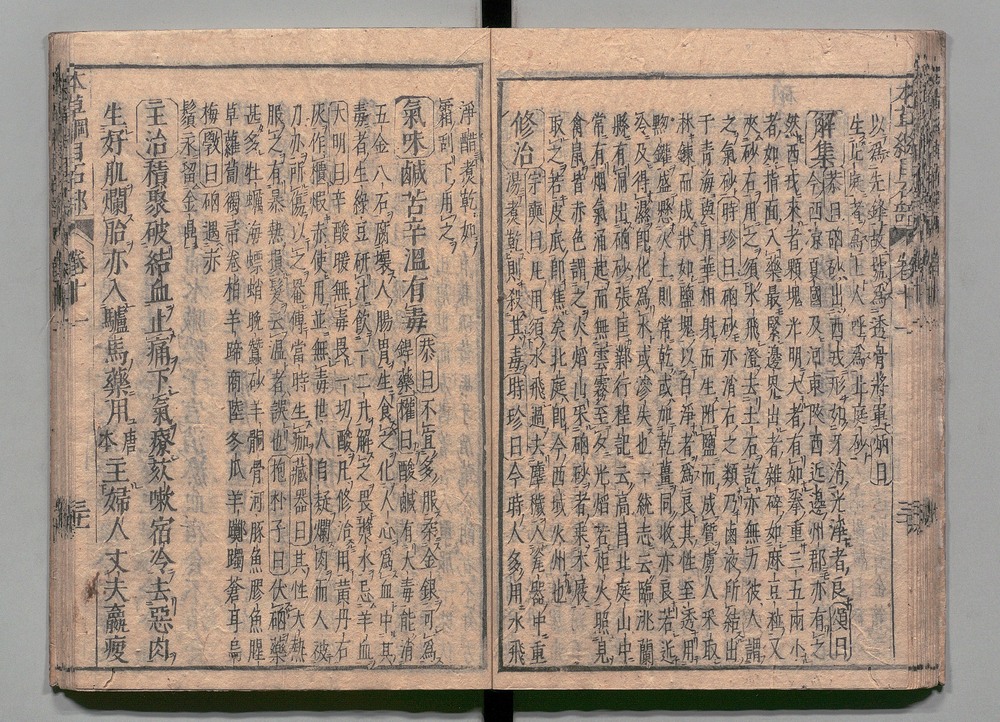 以爲先鋒故號爲透骨將軍炳曰
生北庭者爲上人呼爲北庭砂
解集恭曰硇砂出西戎形如牙消光淨者良頌曰
今西涼夏國及河東陜西近邊州郡亦有之
然西戎來者顆塊光明大者有如拳重三五兩小
者如指面入藥最緊邊界出者雜碎如麻豆粒又
夾砂石用之須水飛澄去土石訖亦無力彼人謂
之氣砂時珍曰硇砂亦消石之類乃鹵液所結出
于青海與月華相射而生附鹽而成質虜人采取
淋鍊而成狀如鹽塊以白淨者爲良其性至透用
黝罐盛懸火上則常乾或加乾薑同收亦良若近
冷及得濕即化爲水或滲失也一統志云臨洮蘭
縣有洞出硇砂張匡鄴行程記云高昌北庭山中
常有烟氣涌起而無雲霧至夕光熖若炬火照見
禽鼠皆赤色謂之火熖山采硇砂者乘木屐
取之若皮底即焦矣北庭即今西域火州也
修治宗奭曰凡用須水飛過去塵穢入瓷器中重
湯煮乾則殺其毒時珍曰今時人多用水飛
淨醋煮乾如
霜刮下用之
氣味鹹苦辛溫有毒恭曰不宜多服柔金銀可爲
銲藥權曰酸鹹有大毒能消
五金八石腐壞人腸胃生食之化人心爲血中其
毒者生綠豆研汁飲一二升解之畏漿水忌羊血
大明曰辛酸暖無毒畏一切酸凡修治用黃丹石
灰作櫃煅赤使用並無毒世人自疑爛肉而人被
刀刃所傷以之罨傅當時生痂藏器曰其性大熱
服之有暴熱損髮云溫者誤也抱朴子曰伏硇藥
甚多牡蠣海螵蛸晚蠶砂羊䯊骨河豚魚膠魚腥
草蘿蔔獨帚卷柏羊蹄商陸冬瓜羊躑躅蒼耳烏
梅斅曰硇遇赤
鬚汞留金鼎
主治積聚破結血止痛下氣療欬嗽宿冷去惡肉
生好肌爛胎亦入驢馬藥用唐本主婦人丈夫羸瘦